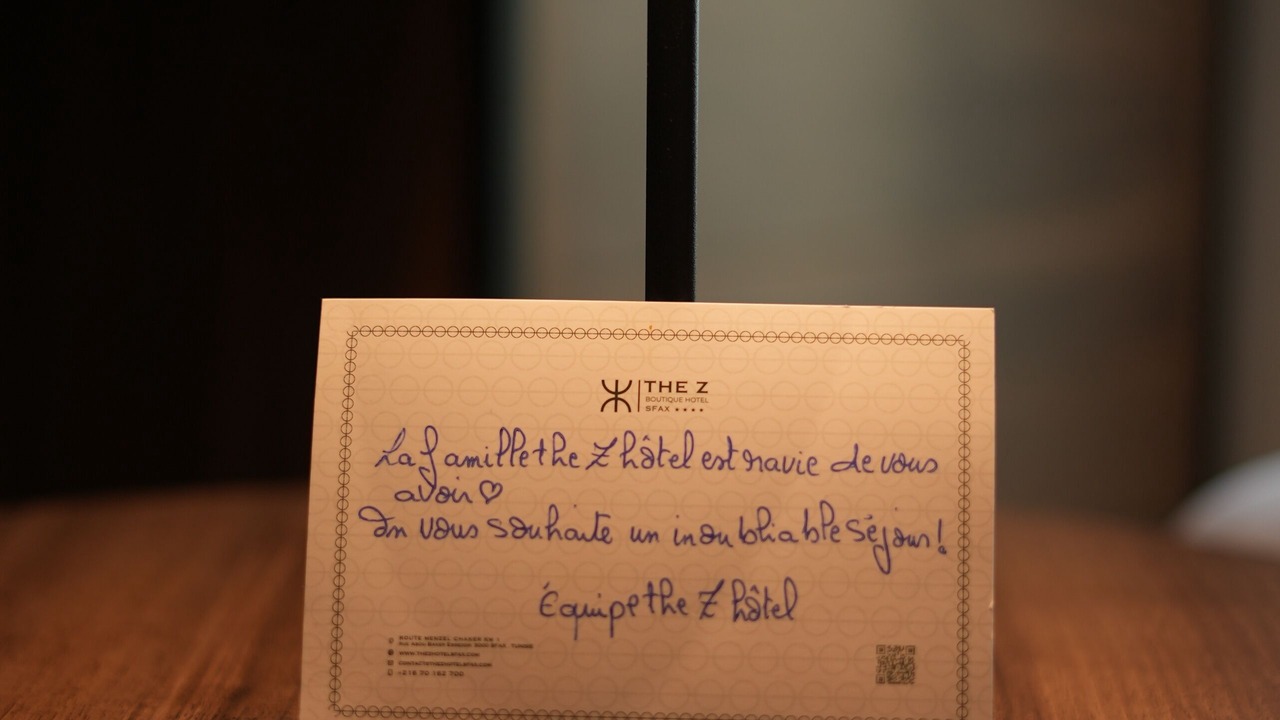 THE Z
BOUTIQUE HOTEL
SFAX ★★★★
La famille the Z hôtel est ravie de vous
avoir ♡
On vous souhaite un inoubliable séjour!
Équipe the Z hôtel
ROUTE MENZEL CHAKER KM 1
WWW.THEZHOTELSFAX.COM
CONTACT@THEZHOTELSFAX.COM
+216 70 162 700